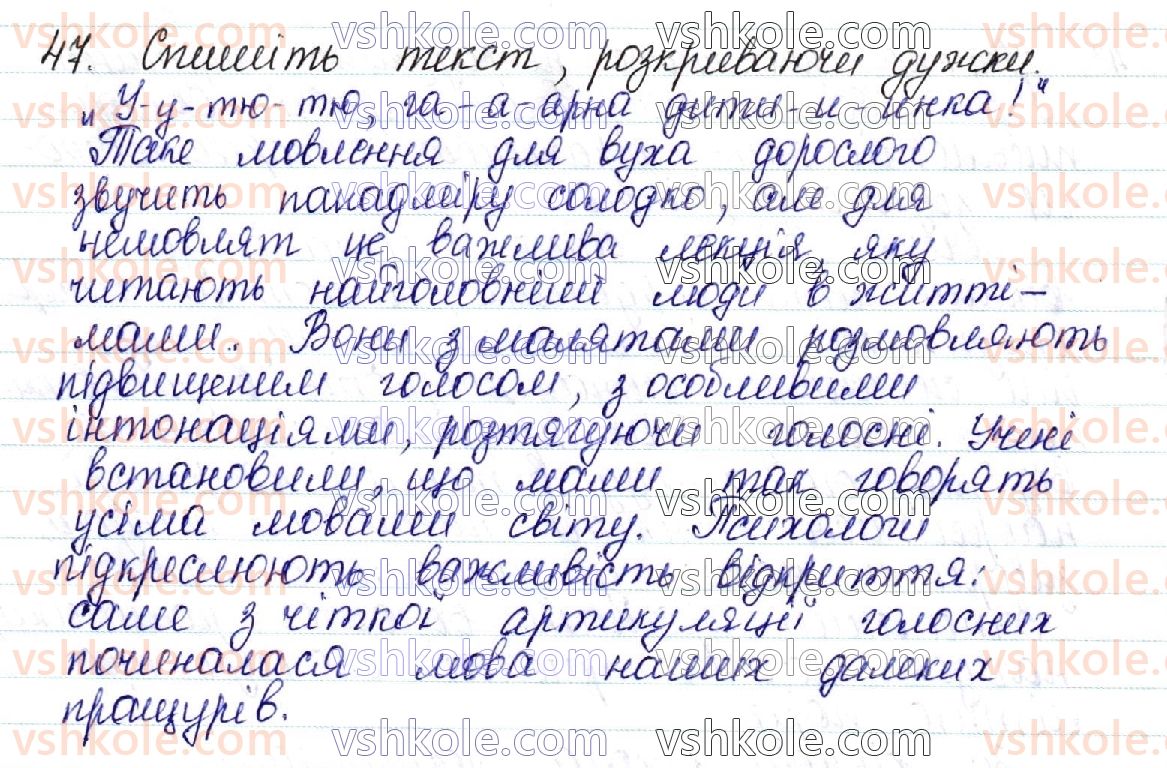 47. Спишіть текст, розкриваючи дужки.
„У-у-тю-тю, га-а-арна дити-и-инка!"
Таке мовлення для вуха дорослого
звучить понадміру солодко, але для
немовлят це важлива лекція, яку
читають найголовніші люди в житті –
мами. Вони з малятами розмовляють
підвищеним голосом, з особливими
інтонаціями, розтягуючи голосні. Учені
встановили, що мами так говорять
усіма мовами світу. Психологи
підкреслюють важливість відкриття:
саме з чіткої артикуляції голосних
починалася мова наших далеких
пращурів.
vshkole.com